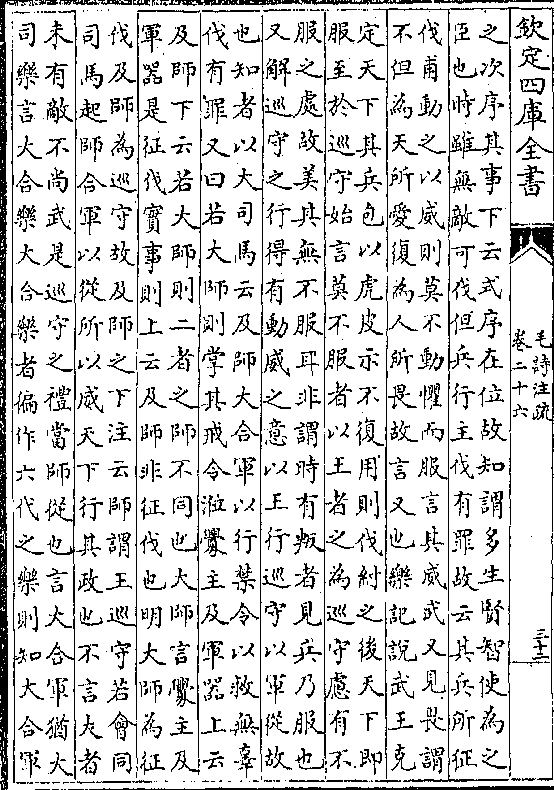 欽定四庫全書
毛詩注疏
卷二十六
三十二
之次序其事下云式序在位故知謂多生賢智使為之
臣也時雖無敵可伐但兵行主伐有罪故云其兵所征
伐甫動之以威則莫不動懼而服言其威武又見畏謂
不但為天所愛復為人所畏故言又也樂記說武王克
定天下其兵包以虎皮示不復用則伐紂之後天下即
服至於巡守始言莫不服者以王者之為巡守慮有不
服之處故美其無不服耳非謂時有叛者見兵乃服也
又解巡守之行得有動威之意以王行巡守以軍從故
也知者以大司馬云及師大合軍以行禁令以救無辜
伐有罪又曰若大師則掌其戒令涖釁主及軍器上云
及師下云若大師則二者之師不同也大師言釁主及
軍器是征伐實事則上云及師非征伐也明大師為征
伐及師為巡守故及師之下注云師謂王巡守若會同
司馬起師合軍以從所以威天下行其政也不言大者
未有敵不尚武是巡守之禮當師從也言大合軍猶大
司樂言大合樂大合樂者徧作六代之樂則知大合軍